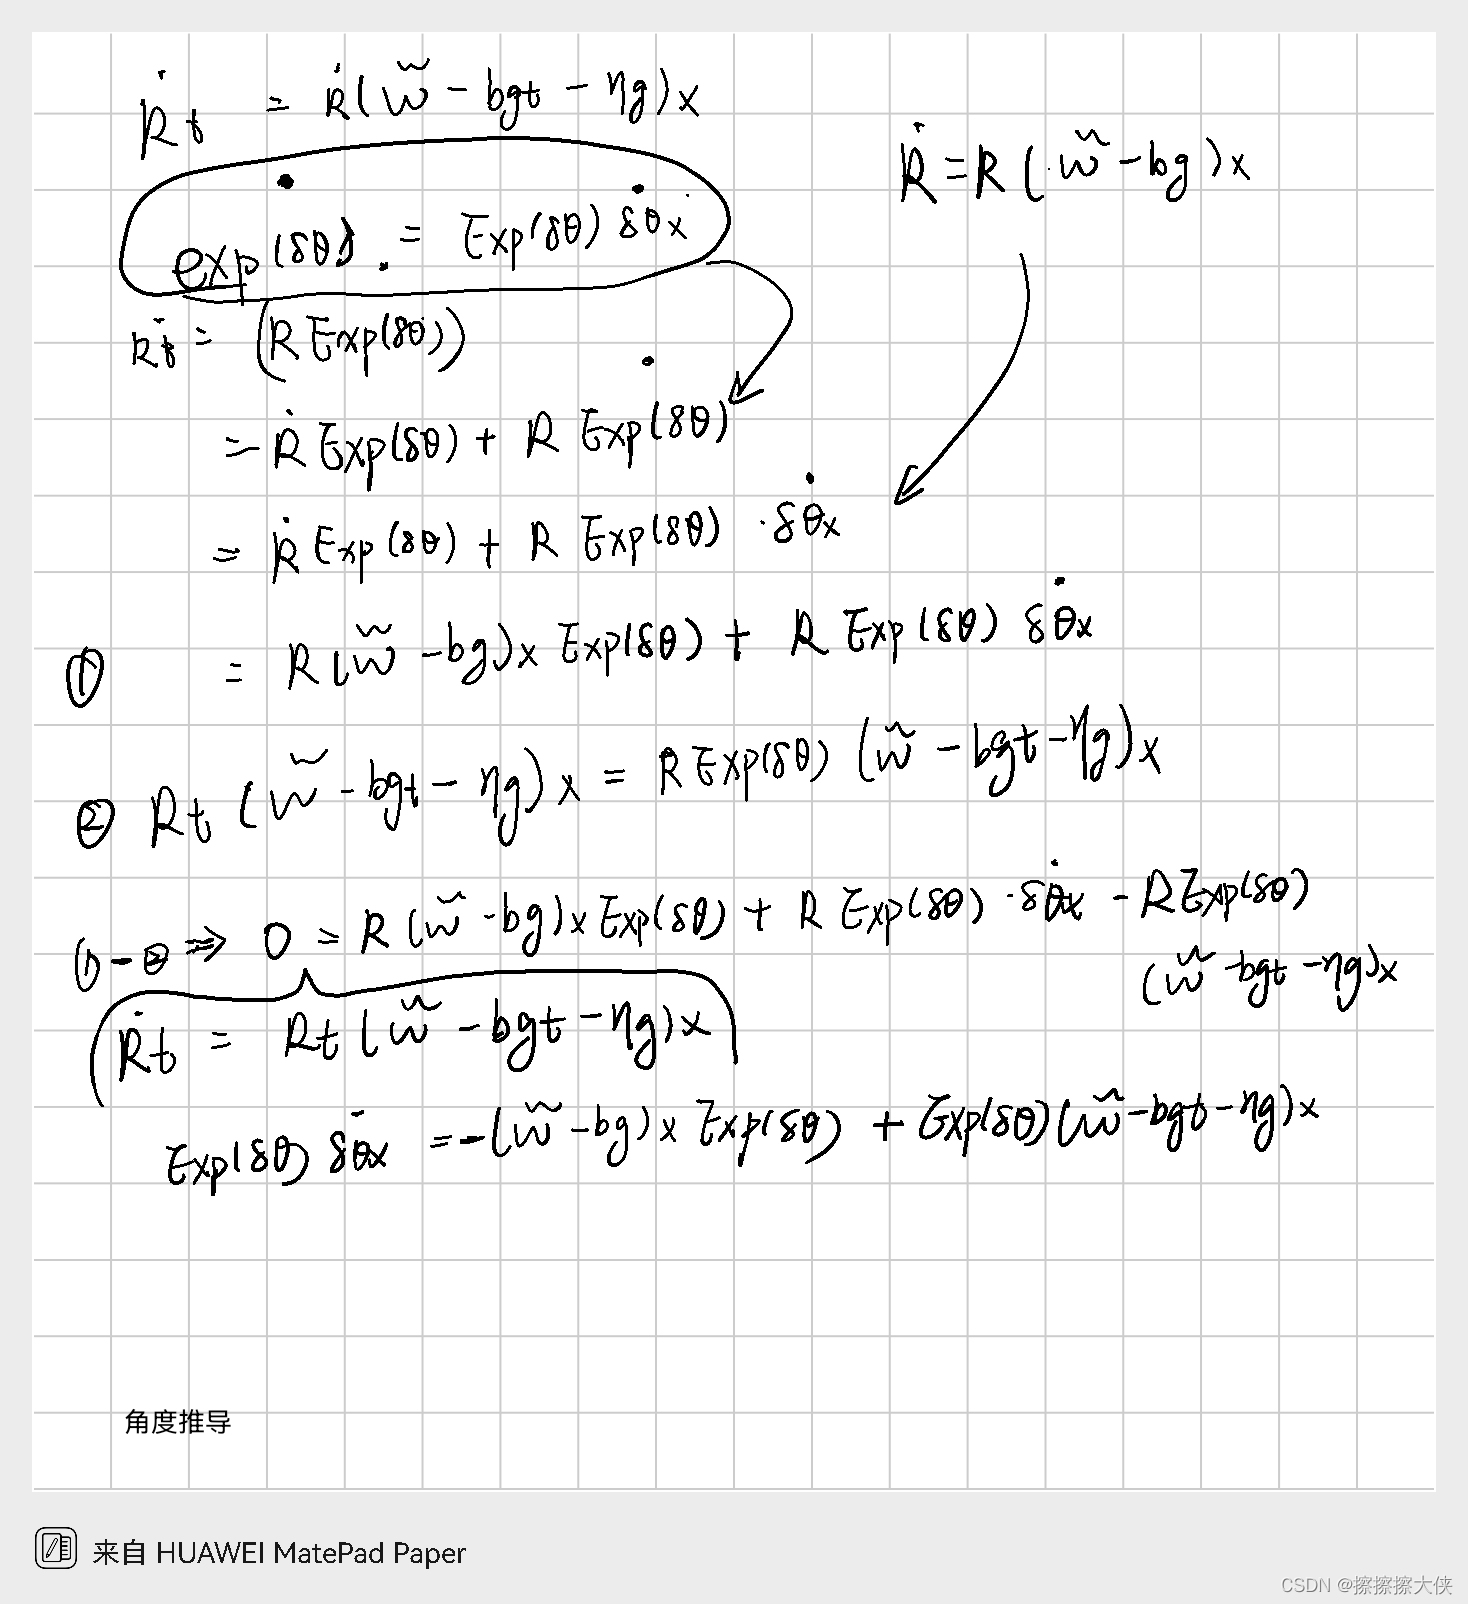 Ṙt = Ṙ(w̃ - bgt - ηg)x
Ṙ = R(w̃ - bg)x
exp(δθ)˙ = Exp(δθ) δθ̇x
Ṙt = (R Exp(δθ))
= Ṙ Exp(δθ) + R Exp(δθ)˙
= Ṙ Exp(δθ) + R Exp(δθ) · δθ̇x
① = R(w̃ - bg)x Exp(δθ) + R Exp(δθ) δθ̇x
② Rt (w̃ - bgt - ηg)x = R Exp(δθ) (w̃ - bgt - ηg)x
① - ② ⇒ 0 = R(w̃ - bg)x Exp(δθ) + R Exp(δθ) · δθ̇x - R Exp(δθ)
(w̃ - bgt - ηg)x
Ṙt = Rt(w̃ - bgt - ηg)x
Exp(δθ) δθ̇x = -(w̃ - bg)x Exp(δθ) + Exp(δθ)(w̃ - bgt - ηg)x
角度推导
来自 HUAWEI MatePad Paper
CSDN @擦擦擦大侠